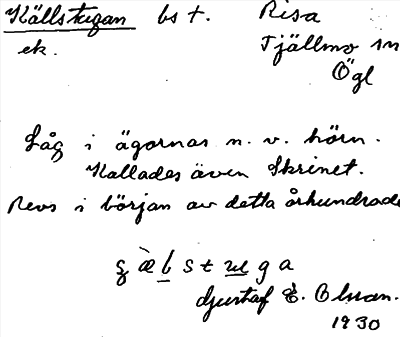 Källstugan bst. Risa
ek. Tjällmo sn
Ögl
Låg i ägornas n. v. hörn.
Kallades även Skrinet.
Revs i början av detta århundrade
st ga
Gustaf E. Olsson.
1930